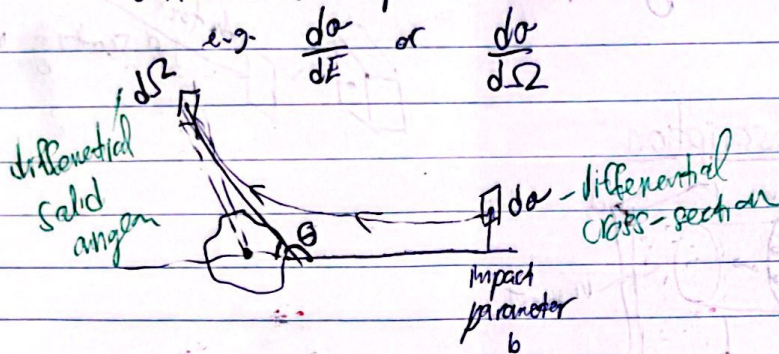 e.g. dσ/dE or dσ/dΩ
dΩ
differential
solid
angle
θ
dσ - differential
cross-section
impact
parameter
b